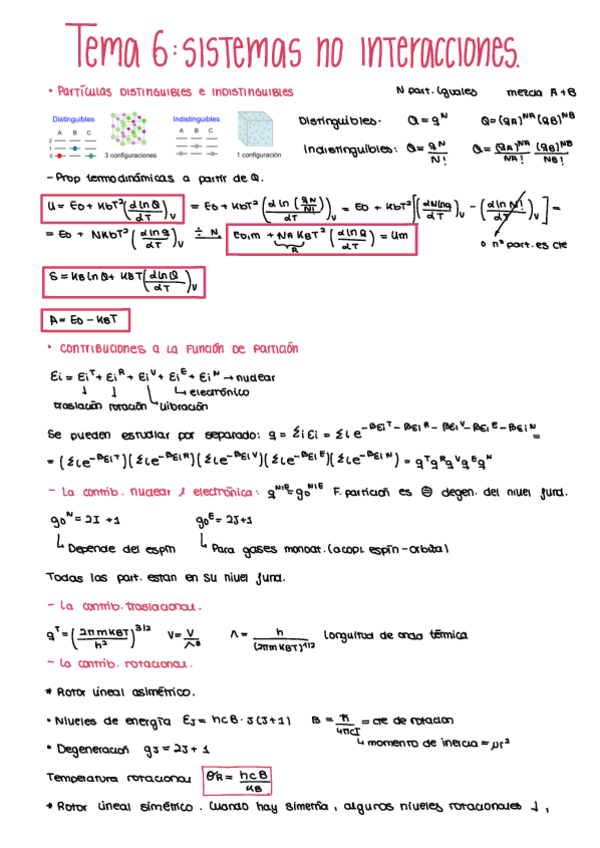 Tema 6: sistemas no interacciones.
• Partículas distinguibles e indistinguibles   N part. iguales   mezcla A+B
Distinguibles   Indistinguibles   Distinguibles.   Q = q^N   Q = (qA)^NA (qB)^NB
A B C   A B C
2
1
0   3 configuraciones   1 configuración   Indistinguibles: Q = q^N / N!   Q = (qA)^NA / NA! (qB)^NB / NB!
- Prop termodinámicas a partir de Q.
U = E0 + KbT² (dlnQ/dT)v = E0 + KbT² (d ln (q^N/N!)/dT)v = E0 + KbT² [(dNlnq/dT)v - (dlnN!/dT)v] =
= E0 + NKbT² (dlnq/dT)v ÷ N, E0,m + NA KBT² (dlnq/dT) = Um   0 nº part. es cte
R
S = KB lnQ + KBT (dlnQ/dT)v
A = E0 - KBT
• Contribuciones a la función de partición
Ɛi = Ɛi^T + Ɛi^R + Ɛi^V + Ɛi^E + Ɛi^N → nuclear
electrónico
traslación rotación vibración
Se pueden estudiar por separado: q = Σi Ɛi = Σi e^-βƐi^T - βƐi^R - βƐi^V - βƐi^E - βƐi^N =
= (Σi e^-βƐi^T)(Σi e^-βƐi^R)(Σi e^-βƐi^V)(Σi e^-βƐi^E)(Σi e^-βƐi^N) = q^T q^R q^V q^E q^N
- La contrib. nuclear y electrónica: q^N|E = g0^N|E F. partición es = degen. del nivel fund.
g0^N = 2I + 1   g0^E = 2J+1
Depende del espín   Para gases monoat. (acopl espín-orbita)
Todas las part. estan en su nivel fund.
- La contrib. traslacional.
q^T = (2πmKBT / h²)^3/2   V = V/Λ³   Λ = h / (2πmKBT)^1/2   longitud de onda térmica
- La contrib. rotacional.
* Rotor lineal asimétrico.
• Niveles de energía ƐJ = hcB · J(J+1)   B = ħ / 4πcI = cte de rotación
• Degeneración gJ = 2J + 1   momento de inercia = μr²
Temperatura rotacional ΘR = hcB / KB
* Rotor lineal simétrico. Cuando hay simetría, algunos niveles rotacionales ↓,